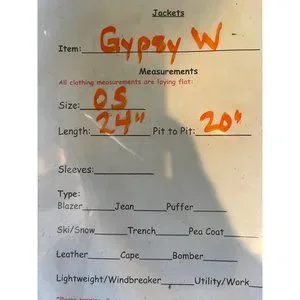 Jackets
Item: Gypsy W
Measurements
All clothing measurements are laying flat:
Size: OS
Length: 24" Pit to Pit: 20"
Sleeves:
Type:
Blazer Jean Puffer
Ski/Snow Trench Pea Coat
Leather Cape Bomber
Lightweight/Windbreaker Utility/Work